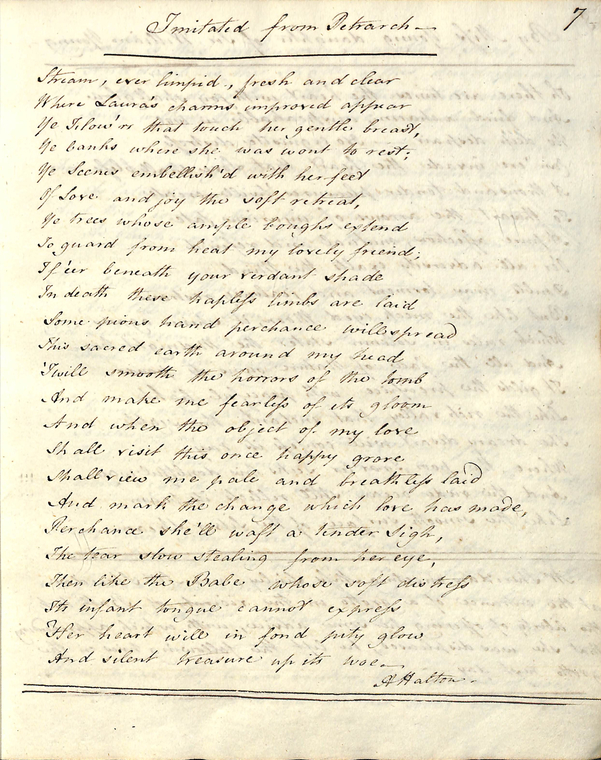 7
Imitated from Petrarch
Stream, ever limpid, fresh and clear
Where Laura's charms improved appear
Ye Flow'rs that touch her gentle breast,
Ye banks where she was wont to rest;
Ye Scenes embellish'd with her feet
Of Love and joy the soft retreat,
Ye trees whose ample boughs extend
To guard from heat my lovely friend;
If e'er beneath your verdant shade
In death these hapless limbs are laid
Some pious hand perchance will spread
This sacred earth around my head
'Twill smooth the horrors of the tomb
And make me fearless of its gloom
And when the object of my love
Shall visit this once happy grove
Shall view me pale and breathless laid
And mark the change which love has made,
Perchance she'll waft a tender Sigh,
The tear slow stealing from her eye,
Then like the Babe whose soft distress
Its infant tongue cannot express
Her heart will in fond pity glow
And silent treasure up its woe
A Halton